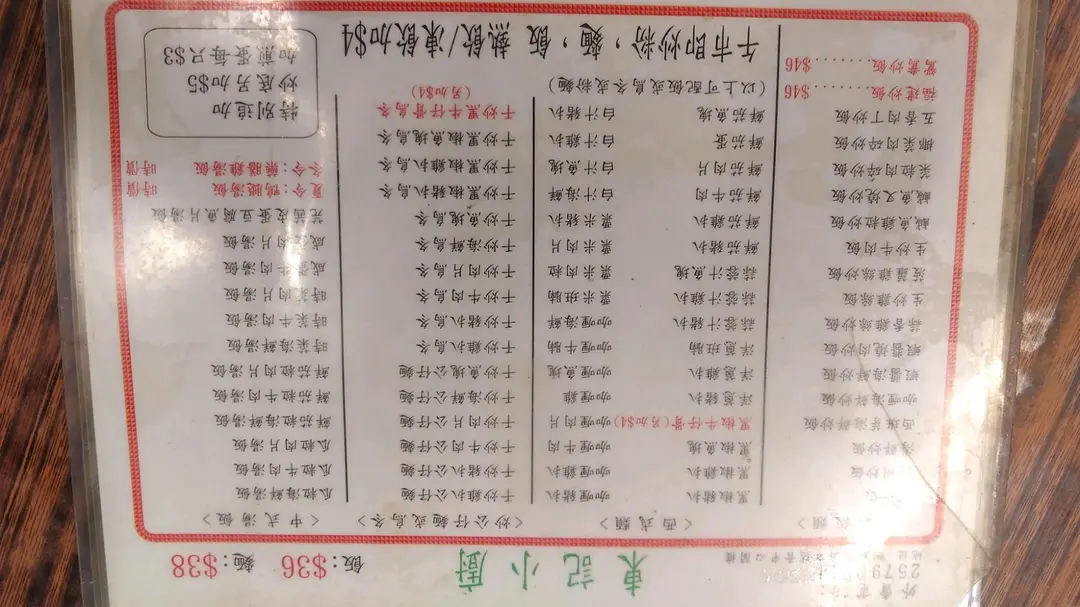 外賣電話:
2579
東記小廚
飯:$36 麵:$38
<西式類>
黑椒豬扒 咖喱豬扒
黑椒雞扒 咖喱雞扒
黑椒魚塊 咖喱牛肉
黑椒牛仔骨(另加$4) 咖喱肉片
洋蔥豬扒 咖喱雞
洋蔥雞扒 咖喱魚塊
洋蔥班腩 咖喱牛腩
蒜蓉汁豬扒 咖喱海鮮
蒜蓉汁雞扒 粟米班腩
蒜蓉汁魚塊 粟米肉粒
鮮茄豬扒 粟米肉片
鮮茄雞扒 粟米豬扒
鮮茄牛肉 白汁海鮮
鮮茄肉片 白汁魚塊
鮮茄蛋 白汁雞扒
鮮茄魚塊 白汁豬扒
(以上可配飯或烏冬或粉麵)
海鮮炒飯
咖喱海鮮炒飯
蝦醬海鮮炒飯
蝦醬燒肉炒飯
蒜香雞絲炒飯
生炒雞絲飯
菠蘿雞絲炒飯
生炒牛肉飯
鹹魚雞粒炒飯
鹹魚叉燒炒飯
菜粒肉碎炒飯
椰菜肉碎炒飯
五香肉丁炒飯
福建炒飯.........$46
鴛鴦炒飯.........$46
<炒公仔麵或烏冬>
干炒雞扒公仔麵
干炒豬扒公仔麵
干炒牛肉公仔麵
干炒肉片公仔麵
干炒海鮮公仔麵
干炒魚塊公仔麵
干炒雞扒烏冬
干炒豬扒烏冬
干炒牛肉烏冬
干炒肉片烏冬
干炒海鮮烏冬
干炒魚塊烏冬
干炒黑椒豬扒烏冬
干炒黑椒雞扒烏冬
干炒黑椒魚塊烏冬
干炒黑牛仔骨烏冬
(另加$4)
<中式湯飯>
瓜粒海鮮湯飯
瓜粒牛肉湯飯
瓜粒肉片湯飯
鮮茄粒海鮮湯飯
鮮茄粒牛肉湯飯
鮮茄粒肉片湯飯
時菜海鮮湯飯
時菜牛肉湯飯
時菜肉片湯飯
鹹蛋牛肉湯飯
鹹蛋肉片湯飯
芫茜皮蛋豆腐魚片湯飯
夏令:鴨腿湯飯 時價
冬令:藥膳雞湯飯 時價
特別追加
炒底另加$5
加煎蛋每只$3
午市即炒粉,麵,飯,熱飲/凍飲加$4